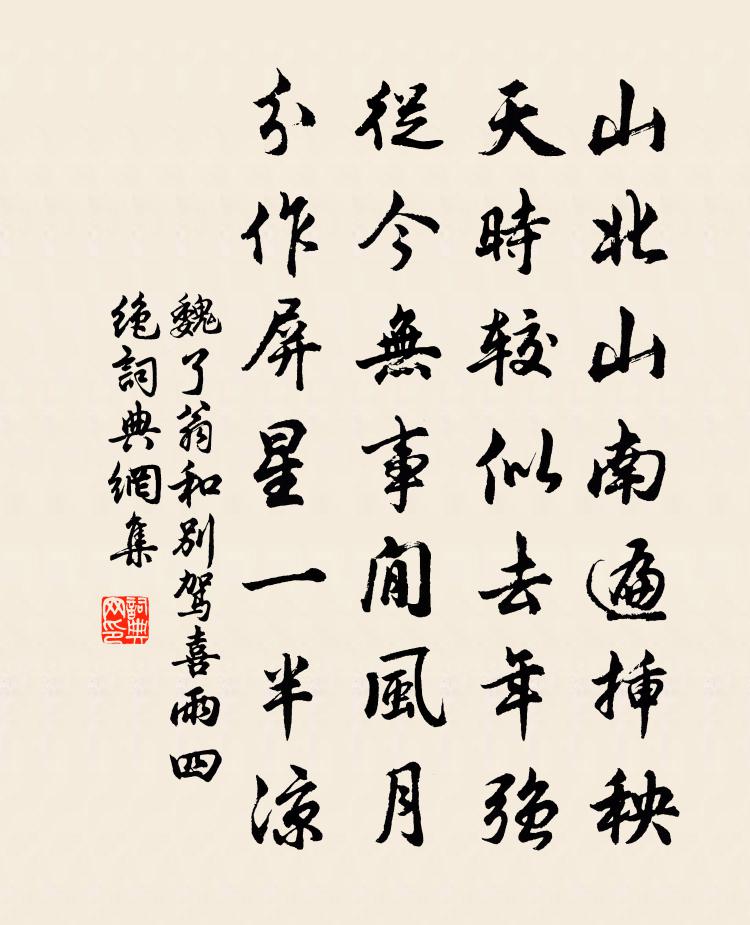 山北山南遍插秧
天時較似去年強
從今無事閒風月
分作屏星一半涼
魏了翁和別駕喜雨四
絶詞典網集
詞典
网印